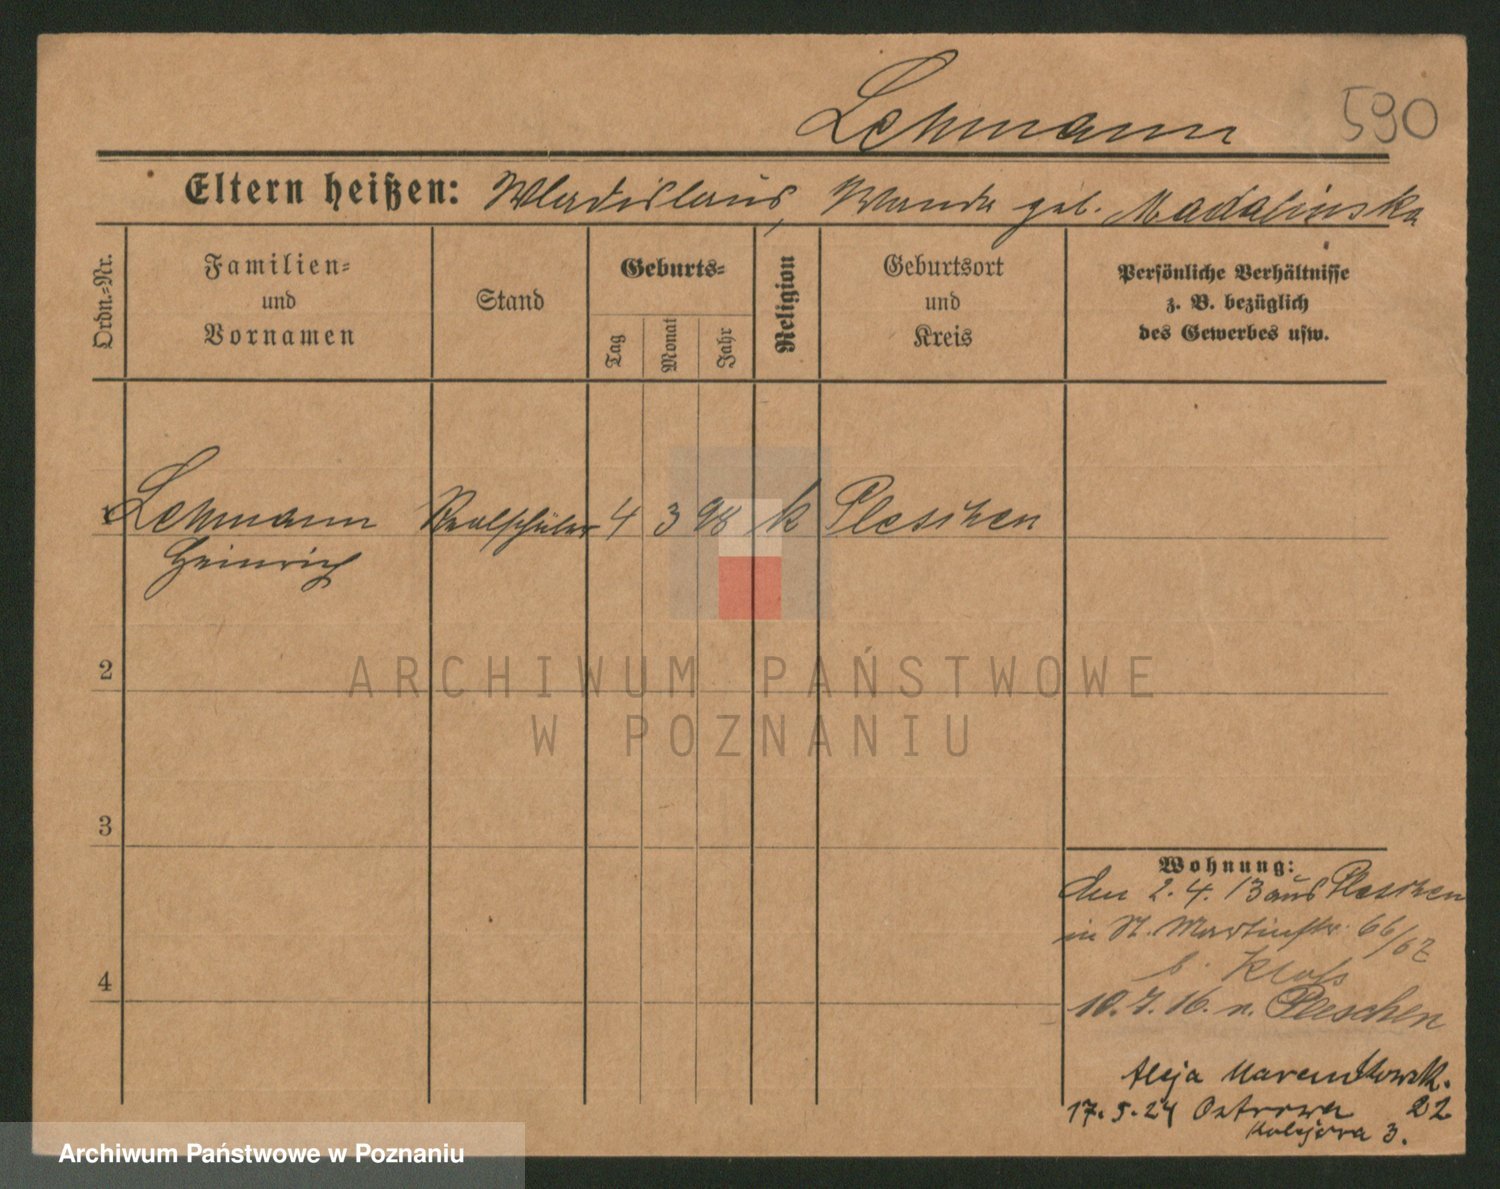 Lehmann 590
Eltern heißen: Wladislaus, Wanda geb. Madalinska
Ordn.-Nr.
Familien-
und
Vornamen
Stand
Geburts-
Tag
Monat
Jahr
Religion
Geburtsort
und
Kreis
Persönliche Verhältnisse
z. B. bezüglich
des Gewerbes usw.
1 Lehmann Realschüler 4 3 98 k Pleschen
Heinrich
2
3
4
Wohnung:
den 2.4.13 aus Pleschen
in St. Martinstr. 66/67
b. Kloss
10.7.16. n. Pleschen
Aleja Marcinkowsk. 22
17.5.24 Ostrowa
Kolejowa 3.
ARCHIWUM PAŃSTWOWE
W POZNANIU
Archiwum Państwowe w Poznaniu